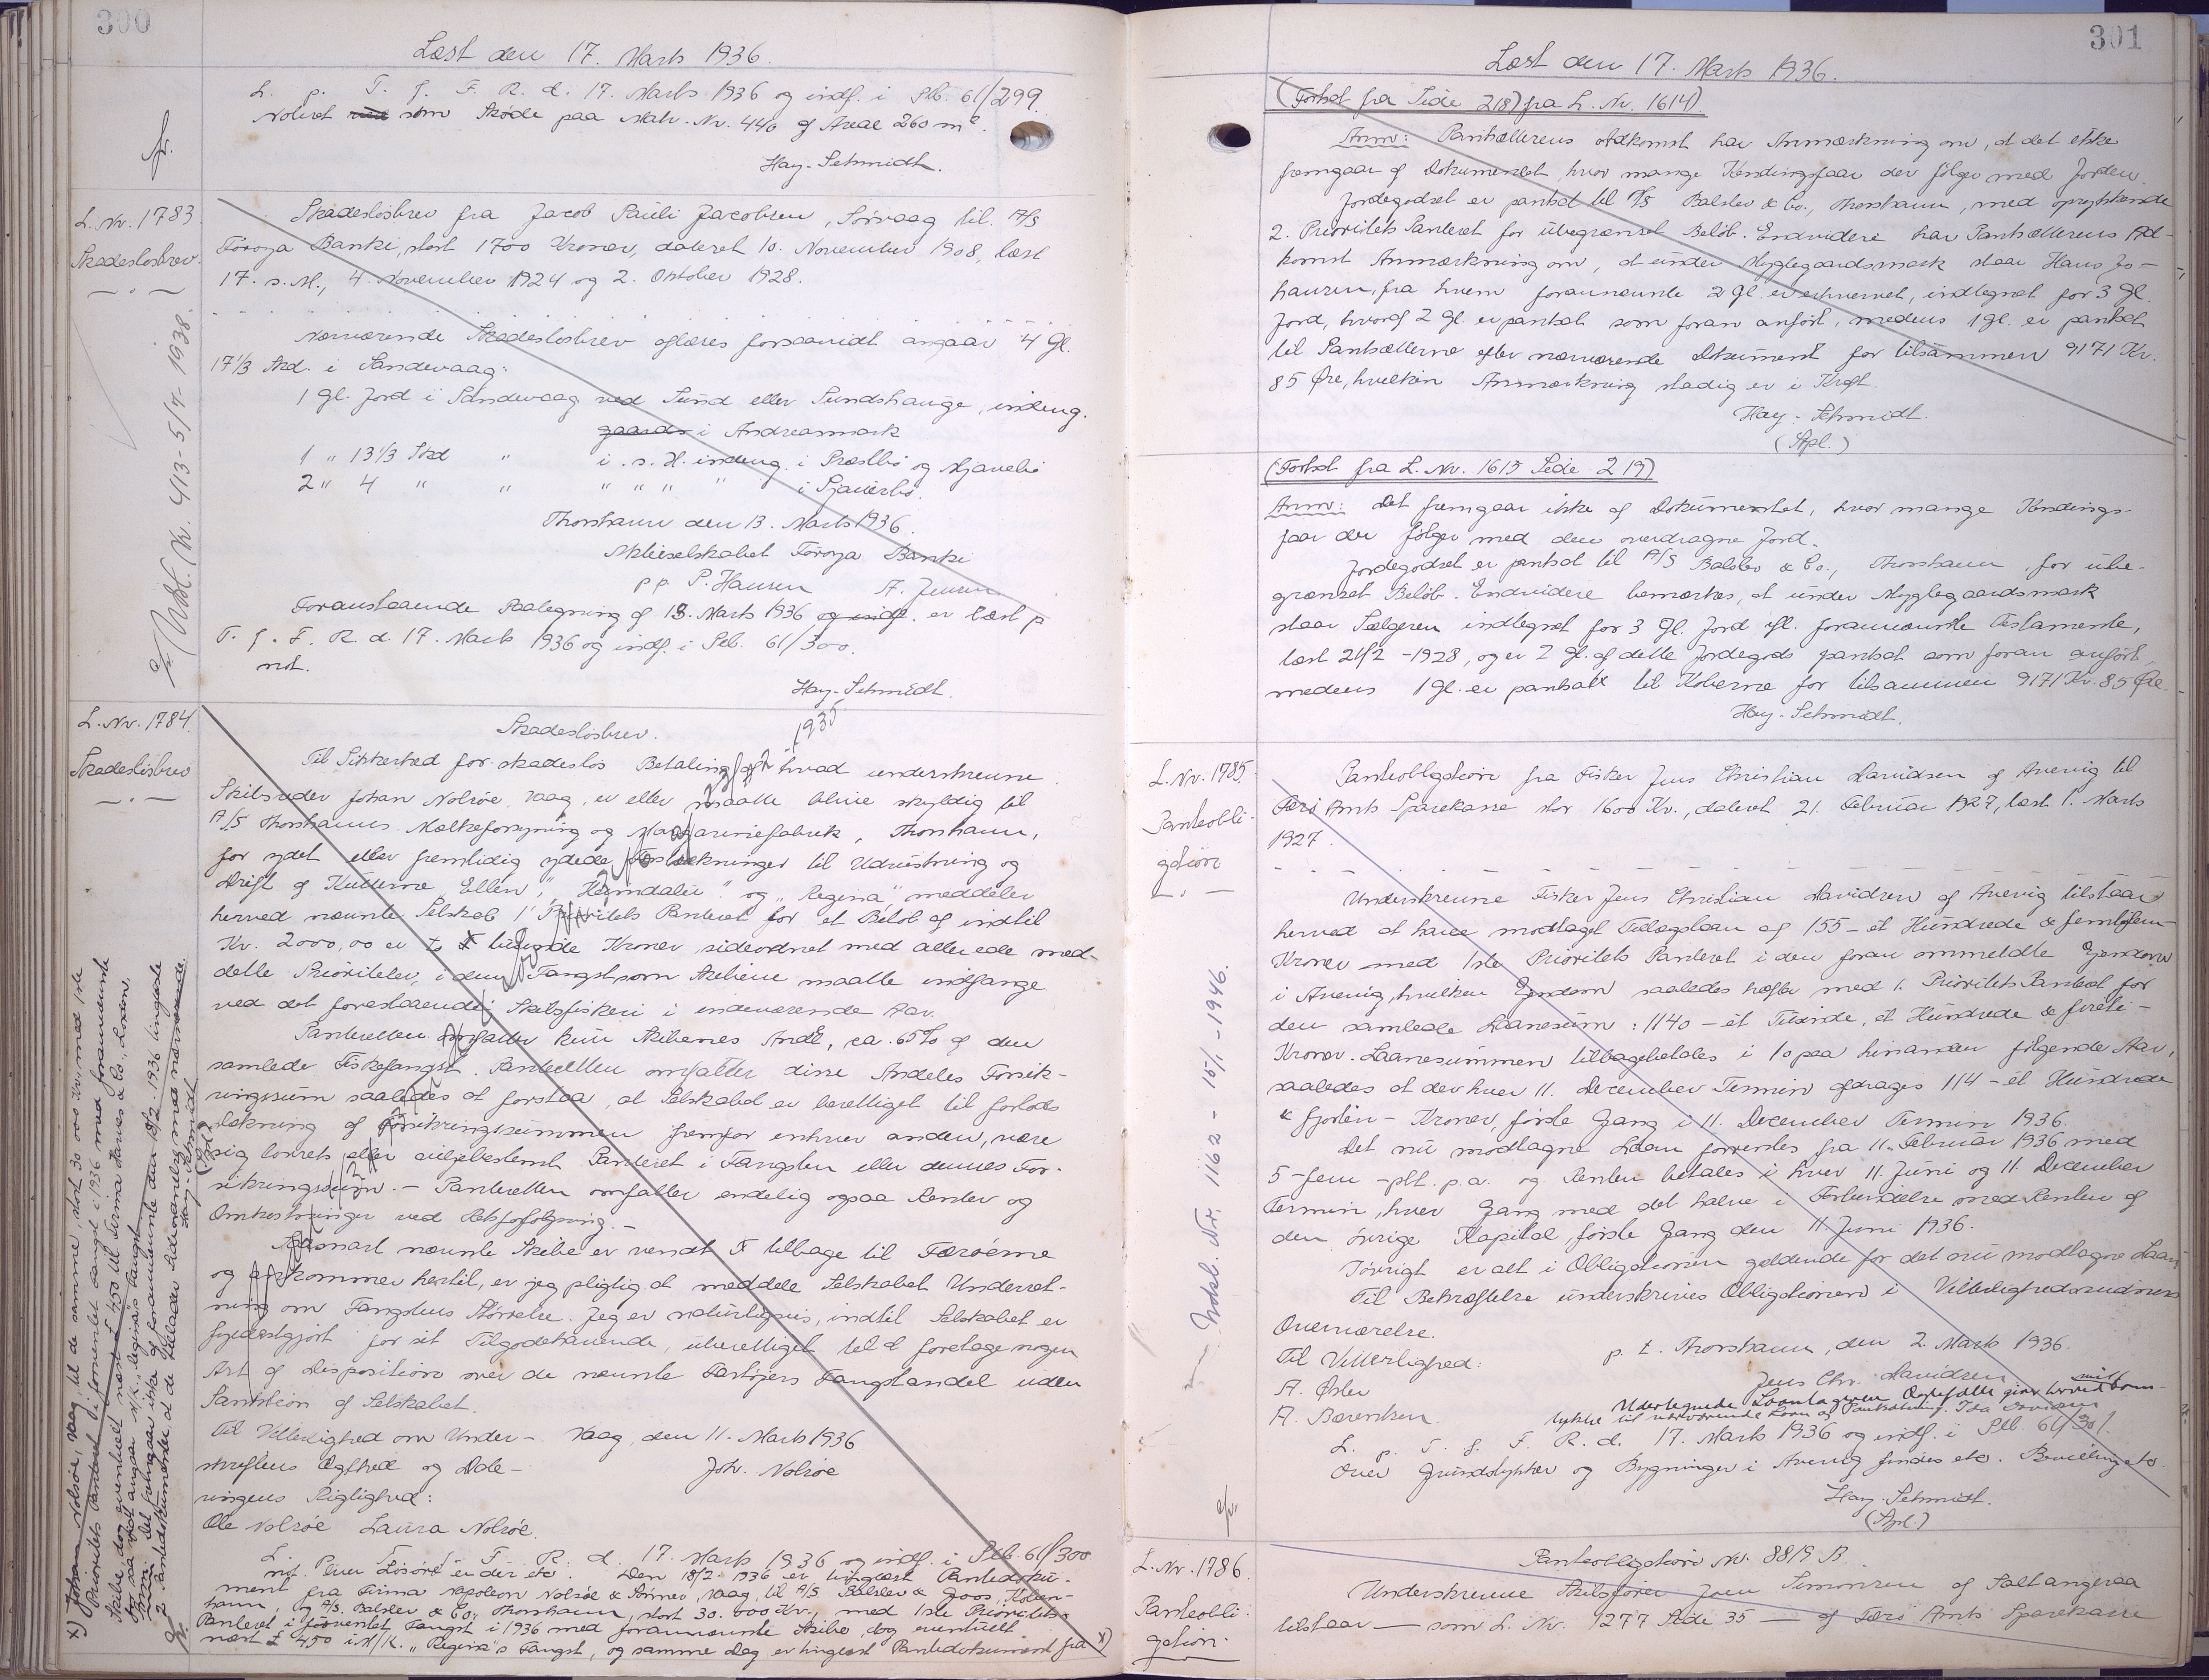 300
Læst den 17. Marts 1936.
L. p. T. f. F. R. d. 17. Marts 1936 og indf. i Pb. 61/299.
Noteret som Skøde paa Matr. Nr. 440 af Areal 260 m².
Hay-Schmidt.
L. Nr. 1783.
Skadesløsbrev.
Skadesløsbrev fra Jacob Pauli Jacobsen, Sörvaag til A/S
Föroya Banki, stort 1700 Kroner, dateret 10. November 1908, læst
17. s. M., 4. November 1924 og 2. Oktober 1928.
Nærværende Skadesløsbrev aflæses forsaavidt angaar 4 Gl.
17 1/3 Skd. i Sandevaag:
1 Gl. Jord i Sandevaag ved Sund eller Sundshauge, indeng.
gaards i Andreasmark
1 " 13 1/3 Skd " i s. H. indeng. i Præstbø og
2 " 4 " " " " " " i
Thorshavn den 13. Marts 1936.
Aktieselskabet Föroya Banki
pp. P. Hansen A. Jensen
Foranstaaende Paategning af 13. Marts 1936 og indf. er læst p
T. f. F. R. d. 17. Marts 1936 og indf. i Pb. 61/300.
not.
Hay-Schmidt.
Udsl. Nr. 413 - 5/4 - 1938.
L. Nr. 1784.
Skadesløsbrev
Skadesløsbrev.
1935
Til Sikkerhed for skadesløs Betaling af hvad underskrevne
Skibsreder Johan Nolsøe, Vaag, er eller maatte blive skyldig til
A/S Thorshavns Mælkeforsyning og Margarinefabrik, Thorshavn,
for ydet eller fremtidig ydede Forstrækninger til Udrustning og
Drift af Kutterne "Ellen", "Heimdalur" og "Regina", meddeler
herved nævnte Selskab 1' Prioritets Panteret for et Beløb af indtil
Kr. 2000,00 er to tusinde Kroner sideordnet med allerede med-
delte Prioriteter, i den Fangst som Skibene maatte indfange
ved det forestaaende Skibsfiskeri i indeværende Aar.
Panteretten omfatter kun Skibenes Andel, ca. 65% af den
samlede Fiskefangst. Panteretten omfatter disse Andeles Forsik-
ringssum saaledes at forstaa, at Selskabet er berettiget til forlods
Dækning af Forsikringssummen fremfor enhver anden, være
sig lovrets eller viljebestemt Panteret i Fangsten eller dennes For-
sikringssum. - Panteretten omfatter endelig ogsaa Renter og
Omkostninger ved Retsforfølgning. -
Saasnart nævnte Skibe er vendt tilbage til Færöerne
og ankommer hertil, er jeg pligtig at meddele Selskabet Underret-
ning om Fangstens Størrelse. Jeg er naturligvis, indtil Selskabet er
fyldestgjort for sit Tilgodehavende, uberettiget til at foretage nogen
Art af Disposition over de nævnte Fartøjers Fangstandel uden
Sanktion af Selskabet.
Til Vitterlighed om Under- Vaag, den 11. Marts 1936
skriftens Ægthed og Date- Joh. Nolsøe
ringens Rigtighed:
Ole Nolsøe Laura Nolsøe.
L. p. T. f. F. R. d. 17. Marts 1936 og indf. i Pb. 61/300
not. Over Lösöre er der etc. Den 18/2 1936 er tinglæst Pantedoku-
ment fra Firma Napoleon Nolsøe & Sønner, Vaag, til A/S Balslev & Goos, Köben-
havn, og A/S. Balslev & Co., Thorshavn, stort 30.000 Kr., med 1ste Prioritets
Panteret i forventet Fangst i 1936 med forannævnte Skibe, dog eventuelt
næst £ 450 i M/K. "Regina"s Fangst, og samme Dag er tinglæst Pantedokument fra x)
x) Johan Nolsøe, Vaag, til de samme, stort 30.000 Kr. med 1ste
Prioritets Panteret i forventet Fangst i 1936 med forannævnte
Skibe, dog eventuelt næst £ 450 til Firma Harves & Co., London,
for saa vidt angaar M/K. "Regina"s Fangst.
Anm: Det fremgaar ikke af forannævnte den 18/2 1936 tinglæste
2 Pantedokumenter at de tillader Sideordning med nærværende.
Hay-Schmidt
301
Læst den 17. Marts 1936.
(Fortsat fra Side 218) fra L. Nr. 1614)
Anm: Pantsætterens Adkomst har Anmærkning om, at det ikke
fremgaar af Dokumentet hvor mange Kendingsfaar der følger med Jorden.
Jordegodset er pantsat til A/S Balslev & Co., Thorshavn, med oprykkende
2. Prioritets Panteret for ubegrænset Beløb. Endvidere har Pantsætterens Ad-
komst Anmærkning om, at under Myglegaardsmark staar Hans Jo-
hansen, fra hvem forannævnte 2 Gl. er erhvervet, indtegnet for 3 Gl.
Jord, hvoraf 2 Gl. er pantsat som foran anført, medens 1 Gl. er pantsat
til Pantsætterne efter nærværende Dokument for tilsammen 9171 Kr.
85 Øre, hvilken Anmærkning stadig er i Kraft.
Hay-Schmidt.
(Spl.)
(Fortsat fra L. Nr. 1615 Side 219)
Anm: Det fremgaar ikke af Dokumentet, hvor mange Kendings-
faar der følger med den overdragne Jord.
Jordegodset er pantsat til A/S Balslev & Co., Thorshavn, for ube-
grænset Beløb. Endvidere bemærkes, at under Myglegaardsmark
staar Sælgeren indtegnet for 3 Gl. Jord ifl. forannævnte Testamente,
læst 21/2 - 1928, og er 2 Gl. af dette Jordegods pantsat som foran anført,
medens 1 Gl. er pantsatt til Køberne for tilsammen 9171 Kr. 85 Øre.
Hay-Schmidt.
L. Nr. 1785.
Panteobli-
gation
Panteobligation fra Fisker Jens Christian Davidsen af Avevig til
Færö Amts Sparekasse stor 1600 Kr., dateret 21. Februar 1927, læst 1. Marts
1927.
Underskrevne Fisker Jens Christian Davidsen af Avevig tilstaar
herved at have modtaget Tillægslaan af 155 - et Hundrede & femtifem -
Kroner med 1ste Prioritets Panteret i den foran ommeldte Ejendom
i Avevig, hvilken Ejendom saaledes hæfter med 1. Prioritets Panteret for
den samlede Laanesum: 1140 - et Tusinde, et Hundrede & fireti -
Kroner. Laanesummen tilbagebetales i 10 paa hinanden følgende Aar,
saaledes at der hver 11. December Termin afdrages 114 - et Hundrede
& fjorten - Kroner, første Gang i 11. December Termin 1936.
Det nu modtagne Laan forrentes fra 11. Februar 1936 med
5 - fem - pCt. p.a. og Renten betales i hver 11. Juni og 11. December
Termin, hver Gang med det halve i Forbindelse med Renten af
den øvrige Kapital, første Gang den 11. Juni 1936.
Iövrigt er alt i Obligationen gældende for det nu modtagne Laan.
Til Bekræftelse underskrives Obligationen i Vitterlighedsvidners
Overværelse.
Til Vitterlighed: p. t. Thorshavn, den 2. Marts 1936.
A. Öster Jens Chr. Davidsen
A. Berentsen. Undertegnede Laantagerens Ægtefælle giver herved mit Sam-
tykke til nærværende Laan og Pantsætning. Ida Davidsen
L. p. T. f. F. R. d. 17. Marts 1936 og indf. i Pb. 61/301.
Over Grundstykker og Bygninger i Avevig findes etc. Bevilling etc.
Hay-Schmidt.
(Spl.)
Udsl. Nr. 1162 - 15/1 - 1946.
L. Nr. 1786.
Panteobli-
gation.
Panteobligation Nr. 8819 B.
Underskrevne Skibsfører Joen Simonsen af Saltangeraa
tilstaar — som L. Nr. 1277 Side 35 — af Færö Amts Sparekasse